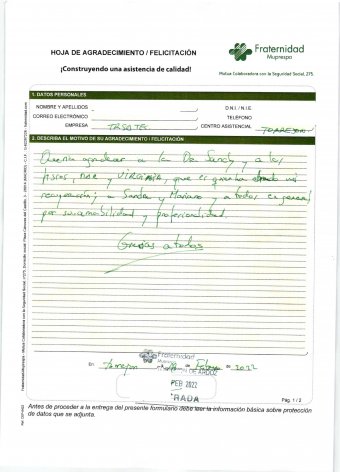 HOJA DE AGRADECIMIENTO / FELICITACIÓN
¡Construyendo una asistencia de calidad!
Fraternidad
Muprespa
Mutua Colaboradora con la Seguridad Social, 275
1. DATOS PERSONALES
NOMBRE Y APELLIDOS
D.N.I / N.I.E
CORREO ELECTRÓNICO
TELÉFONO
EMPRESA
CENTRO ASISTENCIAL TORREJON
2. DESCRIBA EL MOTIVO DE SU AGRADECIMIENTO / FELICITACIÓN
Quería agradecer a la Dra Sandy y a los
fisios, NOE y VIRGINIA, que es quien ha mi
recuperación; a Sandra y Mariano y a todos en general
por su amabilidad y profesionalidad.
Gracias a todos
Fraternidad
Muprespa
en Torrejon de Febrero de 2022
DE ARDOZ
FEB 2022
Pág. 1 / 2
Antes de proceder a la entrega del presente formulario debe leer la información básica sobre protección
de datos que se adjunta.